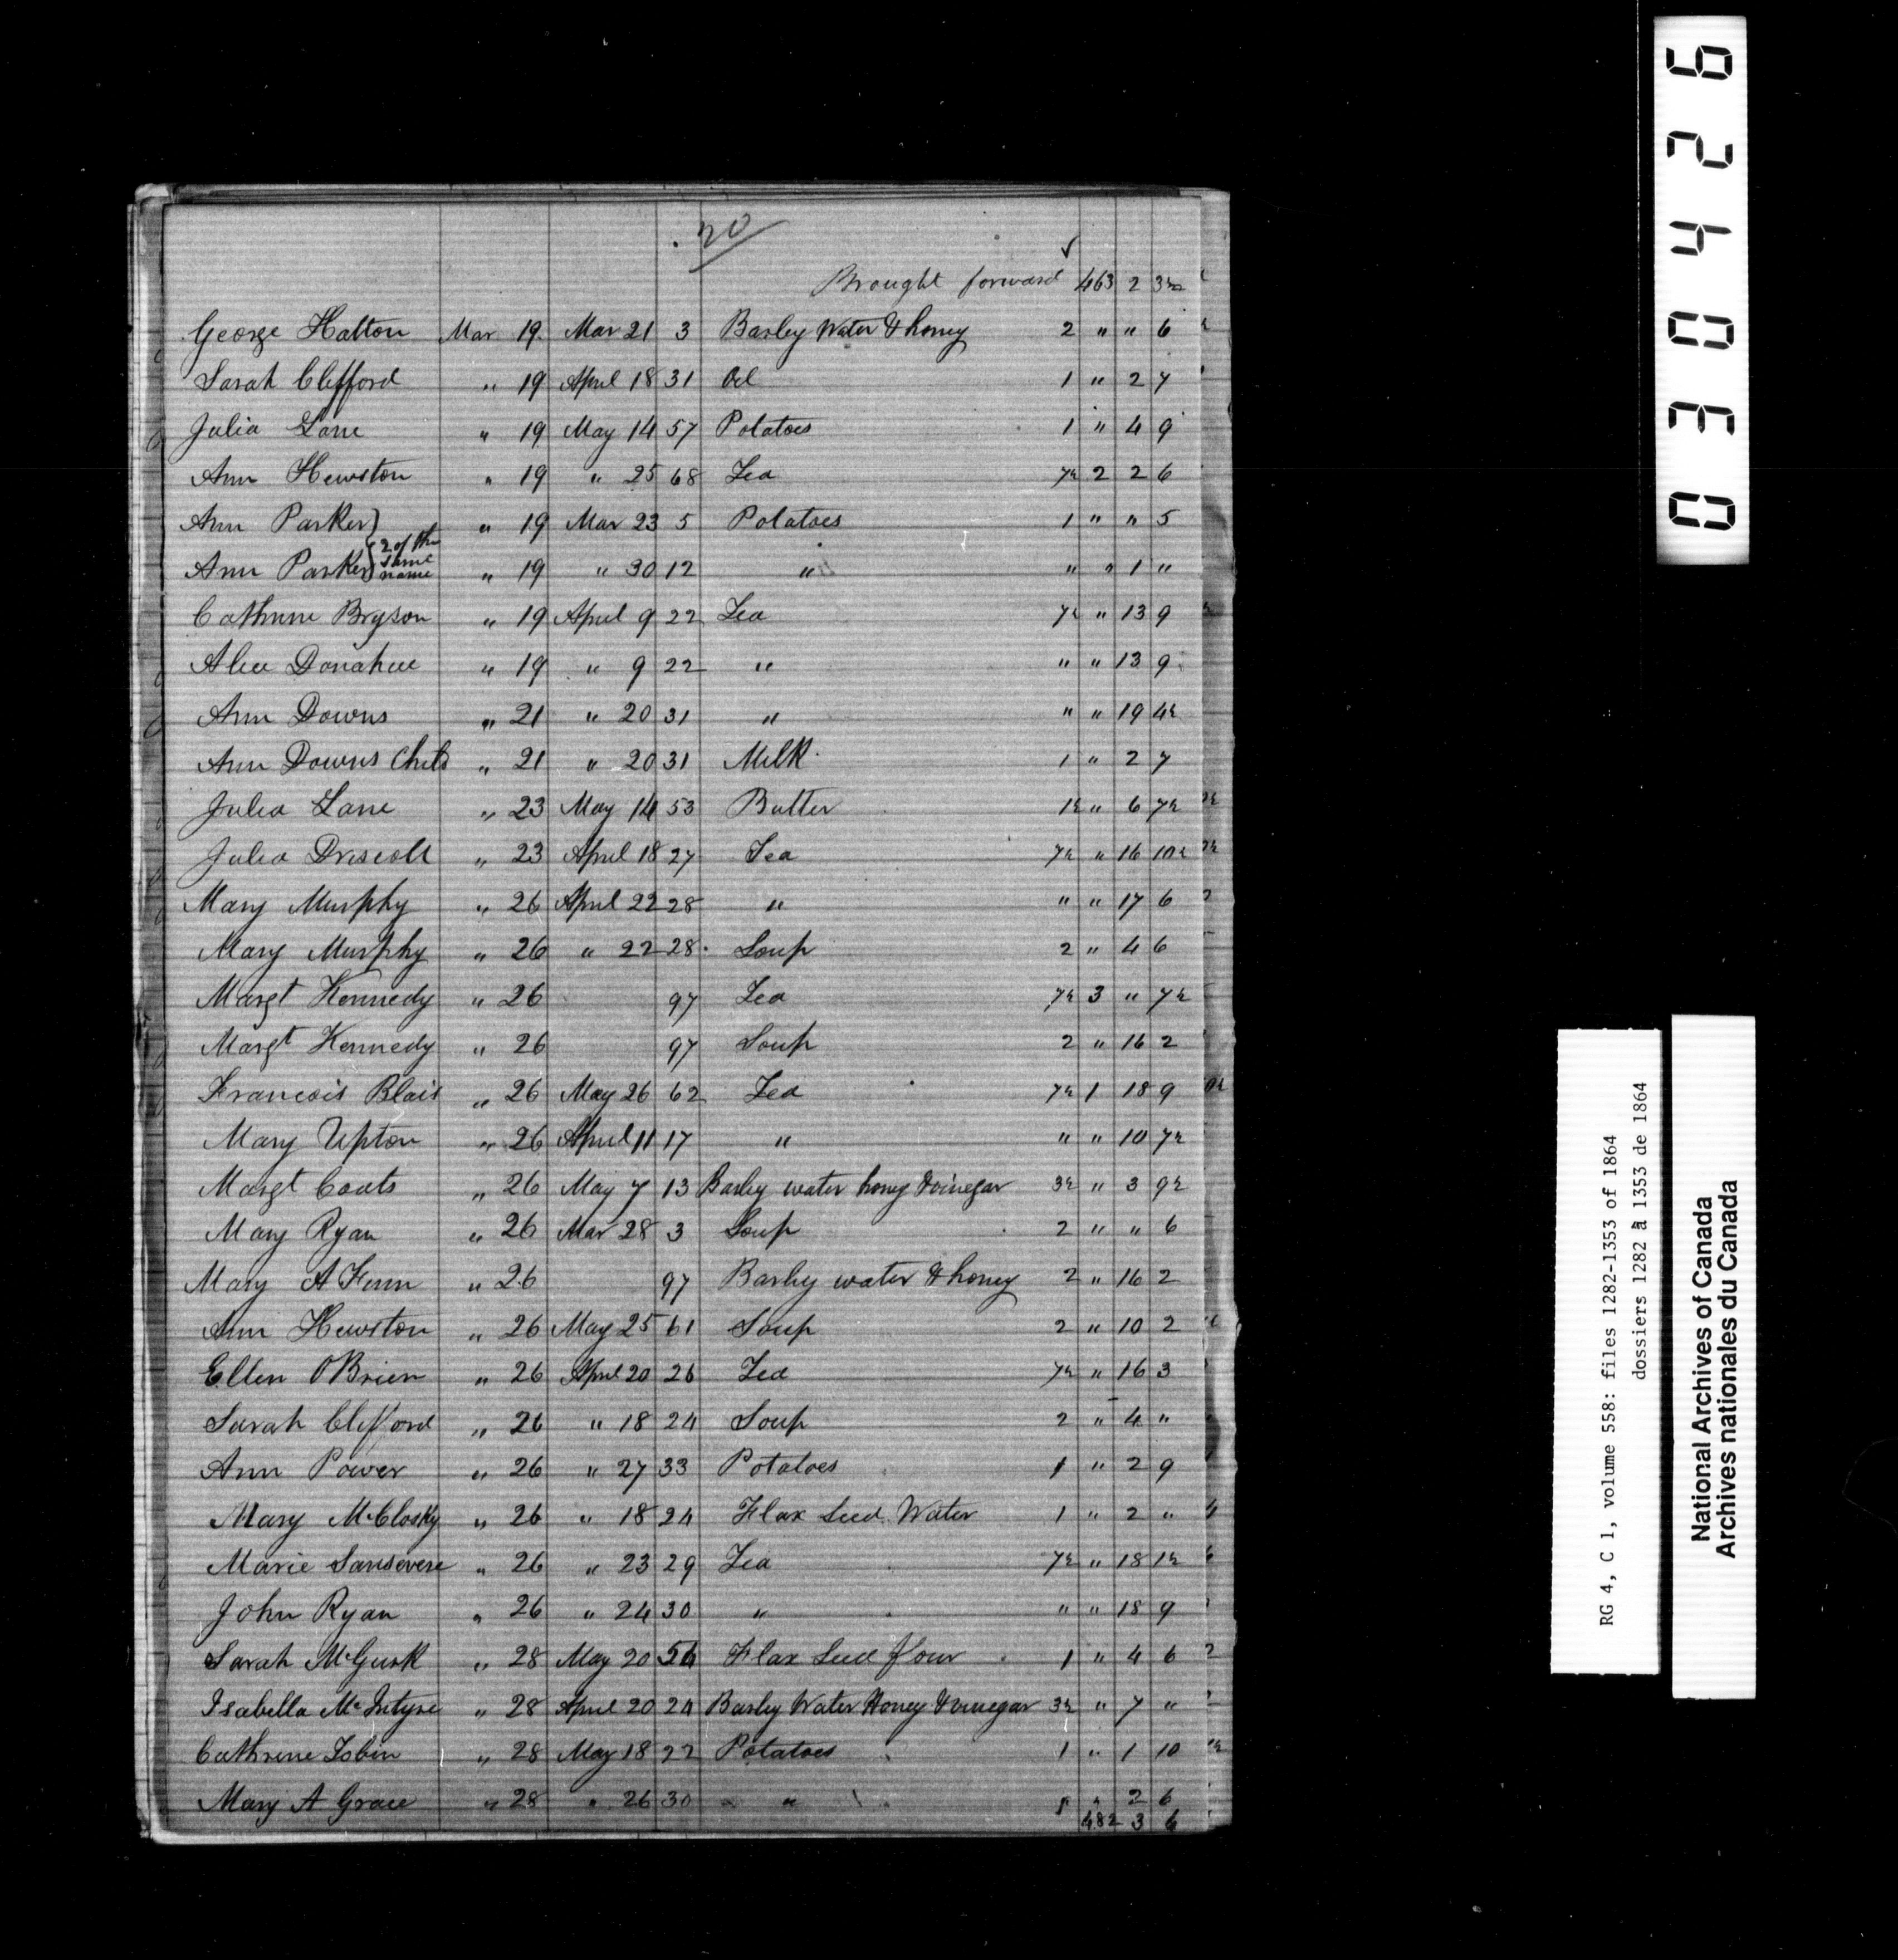 20
Brought forward 463 2 3½
George Hatton Mar 19 Mar 21 3 Barley Water & honey 2 " " 6
Sarah Clifford " 19 April 18 31 Oil 1 " 2 7
Julia Lane " 19 May 14 57 Potatoes 1 " 4 9
Ann Hewston " 19 " 25 68 Tea 7½ 2 2 6
Ann Parker } " 19 Mar 23 5 Potatoes 1 " " 5
Ann Parker } 2 of the same name " 19 " 30 12 " " " 1 "
Cathrine Bryson " 19 April 9 22 Tea 7½ " 13 9
Alice Donahue " 19 " 9 22 " " " 13 9
Ann Downs " 21 " 20 31 " " " 19 4½
Ann Downs Child " 21 " 20 31 Milk 1 " 2 7
Julia Lane " 23 May 14 53 Butter 1½ " 6 7½
Julia Driscoll " 23 April 18 27 Tea 7½ " 16 10½
Mary Murphy " 26 April 22 28 " " " 17 6
Mary Murphy " 26 " 22 28 Soup 2 " 4 6
Margt Kennedy " 26 97 Tea 7½ 3 " 7½
Margt Kennedy " 26 97 Soup 2 " 16 2
Francois Blais " 26 May 26 62 Tea 7½ 1 18 9
Mary Upton " 26 April 11 17 " " " 10 7½
Margt Coats " 26 May 7 13 Barley water honey & vinegar 3½ " 3 9½
Mary Ryan " 26 Mar 28 3 Soup 2 " " 6
Mary A Fenn " 26 97 Barley water & honey 2 " 16 2
Ann Hewston " 26 May 25 61 Soup 2 " 10 2
Ellen O'Brien " 26 April 20 26 Tea 7½ " 16 3
Sarah Clifford " 26 " 18 24 Soup 2 " 4 "
Ann Power " 26 " 27 33 Potatoes 1 " 2 9
Mary McClosky " 26 " 18 24 Flax Seed Water 1 " 2 "
Marie Sansevere " 26 " 23 29 Tea 7½ " 18 1½
John Ryan " 26 " 24 30 " " " 18 9
Sarah McGurk " 28 May 20 54 Flax Seed flour 1 " 4 6
Isabella McIntyre " 28 April 20 24 Barley Water Honey & vinegar 3½ " 7 "
Cathrine Tobin " 28 May 18 22 Potatoes 1 " 1 10
Mary A Grace " 28 " 26 30 " " " 2 6
482 3 6
030426
RG 4, C 1, volume 558: files 1282-1353 of 1864
dossiers 1282 à 1353 de 1864
National Archives of Canada
Archives nationales du Canada